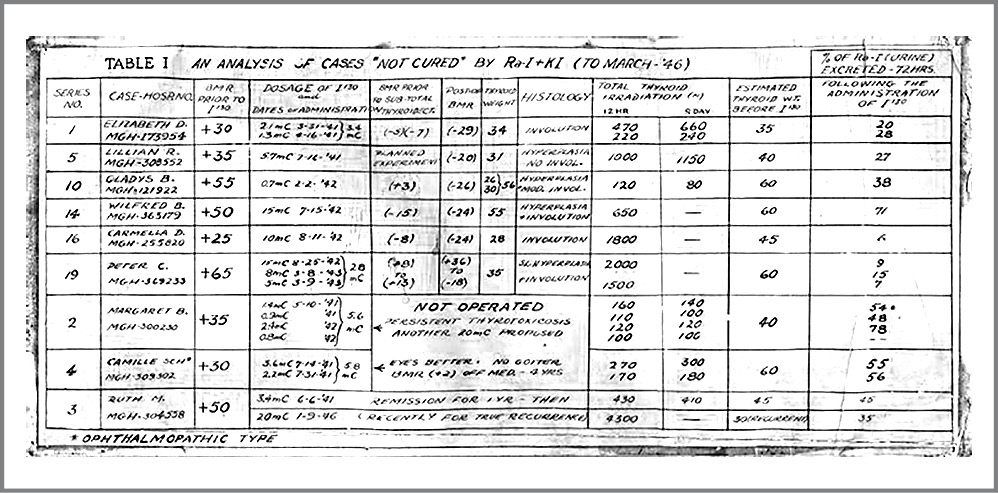 TABLE I AN ANALYSIS OF CASES "NOT CURED" BY Ra-I+KI (TO MARCH-'46)
% OF Ra-I (URINE) EXCRETED-72HRS. FOLLOWING THE ADMINISTRATION OF I¹³⁰
SERIES NO. CASE-HOSP.NO. BMR PRIOR TO I¹³⁰ DOSAGE OF I¹³⁰ and DATES OF ADMINISTRATI BMR PRIOR TO SUB-TOTAL THYROIDECT. BMR THYROID WEIGHT HISTOLOGY TOTAL THYROID IRRADIATION 12 HR DAY ESTIMATED THYROID WT. BEFORE I¹³⁰
1 ELIZABETH D. +30 2.1mC 3-31-41 } 3.4 (-5)(-7) (-29) 34 INVOLUTION 470 660 35 20
MGH-173954 1.3mC 4-16-41 mC 220 240 28
5 LILLIAN R. +35 5.7mC 7-16-'41 PLANNED (-20) 31 HYPERPLASIA 1000 1150 40 27
MGH-308552 EXPERIMENT NO INVOL.
10 GLADYS B. +55 0.7mC 2-2-'42 (+3) (-26) 26 30 } 56 HYPERPLASIA 120 80 60 38
MGH-121922 MOD. INVOL.
14 WILFRED B. +50 15mC 7-15-'42 (-15) (-24) 55 HYPERPLASIA 650 — 60 71
MGH-365179 +INVOLUTION
16 CARMELLA D. +25 10mC 8-11-'42 (-8) (-24) 28 INVOLUTION 1800 — 45 6
MGH-255820
19 PETER C. +65 15mC 8-25-'42 } 28 (+8) (+36) 35 SL.HYPERPLASIA 2000 — 60 9
MGH-369233 8mC 3-8-'43 mC TO TO +INVOLUTION 15
5mC 3-9-'43 (+13) (-18) 1500 7
2 MARGARET B. +35 1.4mC 5-10-'41 } 5.6 NOT OPERATED 160 140 40 54*
MGH-300230 '41 mC PERSISTENT THYROTOXICOSIS 110 100 48
2.4mC '42 ANOTHER 20mC PROPOSED 120 120 78
0.8mC '42 100 100 --
4 CAMILLE SCH* +30 3.6mC 7-14-'41 } 5.8 EYES BETTER. NO GOITER 270 300 60 55
MGH-309302 2.2mC 7-31-'41 mC BMR (+2) OFF MED. - 4 YRS 170 180 56
3 RUTH M. +50 3.4mC 6-6-'41 REMISSION FOR 1 YR - THEN 430 410 45 45
MGH-304558 20mC 1-9-46 (RECENTLY FOR TRUE RECURRENCE) 4300 — 30(RECURRENT) 35
* OPHTHALMOPATHIC TYPE